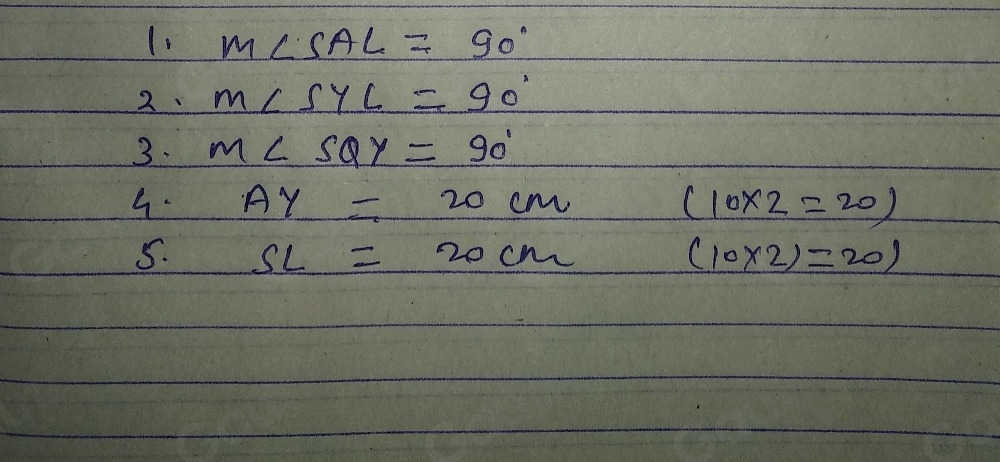 1. m∠SAL = 90°
2. m∠SYL = 90°
3. m∠SQY = 90°
4. AY = 20 cm (10×2=20)
5. SL = 20 cm (10×2)=20)